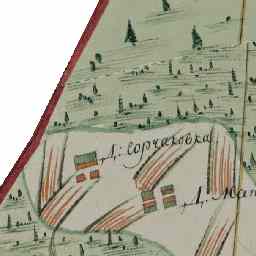 Д: Горчаковка
Д: Мат